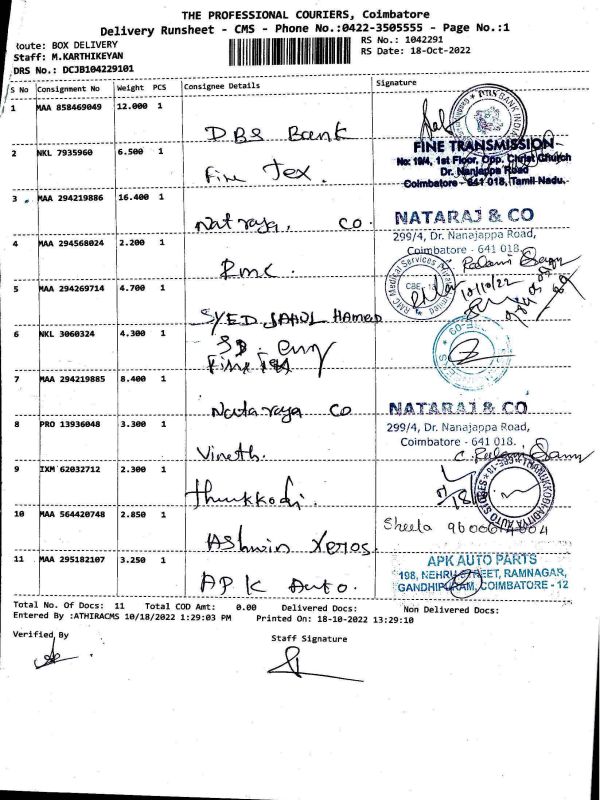 THE PROFESSIONAL COURIERS, Coimbatore
Delivery Runsheet - CMS - Phone No.:0422-3505555 - Page No.:1
Route: BOX DELIVERY
RS No.: 1042291
Staff: M.KARTHIKEYAN
RS Date: 18-Oct-2022
DRS No.: DCJB104229101
S No Consignment No Weight PCS Consignee Details Signature
1 MAA 858469049 12.000 1
DBS Bank
DBS BANK INDIA
2 NKL 7935960 6.500 1
Fine Tex.
FINE TRANSMISSION
No: 19/4, 1st Floor, Opp. Christ Church
Dr. Nanjappa Road
Coimbatore - 641 018, Tamil Nadu.
3 MAA 294219886 16.400 1
Nataraja. CO.
NATARAJ & CO
299/4, Dr. Nanajappa Road,
Coimbatore - 641 018.
4 MAA 294568024 2.200 1
Rmc.
RMC Medical Services
18/10/22
5 MAA 294269714 4.700 1
SYED SAHUL HAMED
6 NKL 3060324 4.300 1
7 MAA 294219885 8.400 1
Nataraja CO
NATARAJ & CO
299/4, Dr. Nanajappa Road,
Coimbatore - 641 018.
8 PRO 13936048 3.300 1
Vineth.
9 IXM 62032712 2.300 1
Thurukkodi.
10 MAA 564420748 2.850 1
Ashwin Xerox
Sheela
11 MAA 295182107 3.250 1
APK Auto.
APK AUTO PARTS
198, NEHRU STREET, RAMNAGAR,
GANDHIPURAM, COIMBATORE - 12
Total No. Of Docs: 11 Total COD Amt: 0.00 Delivered Docs: Non Delivered Docs:
Entered By :ATHIRACMS 10/18/2022 1:29:03 PM Printed On: 18-10-2022 13:29:10
Verified By
Staff Signature